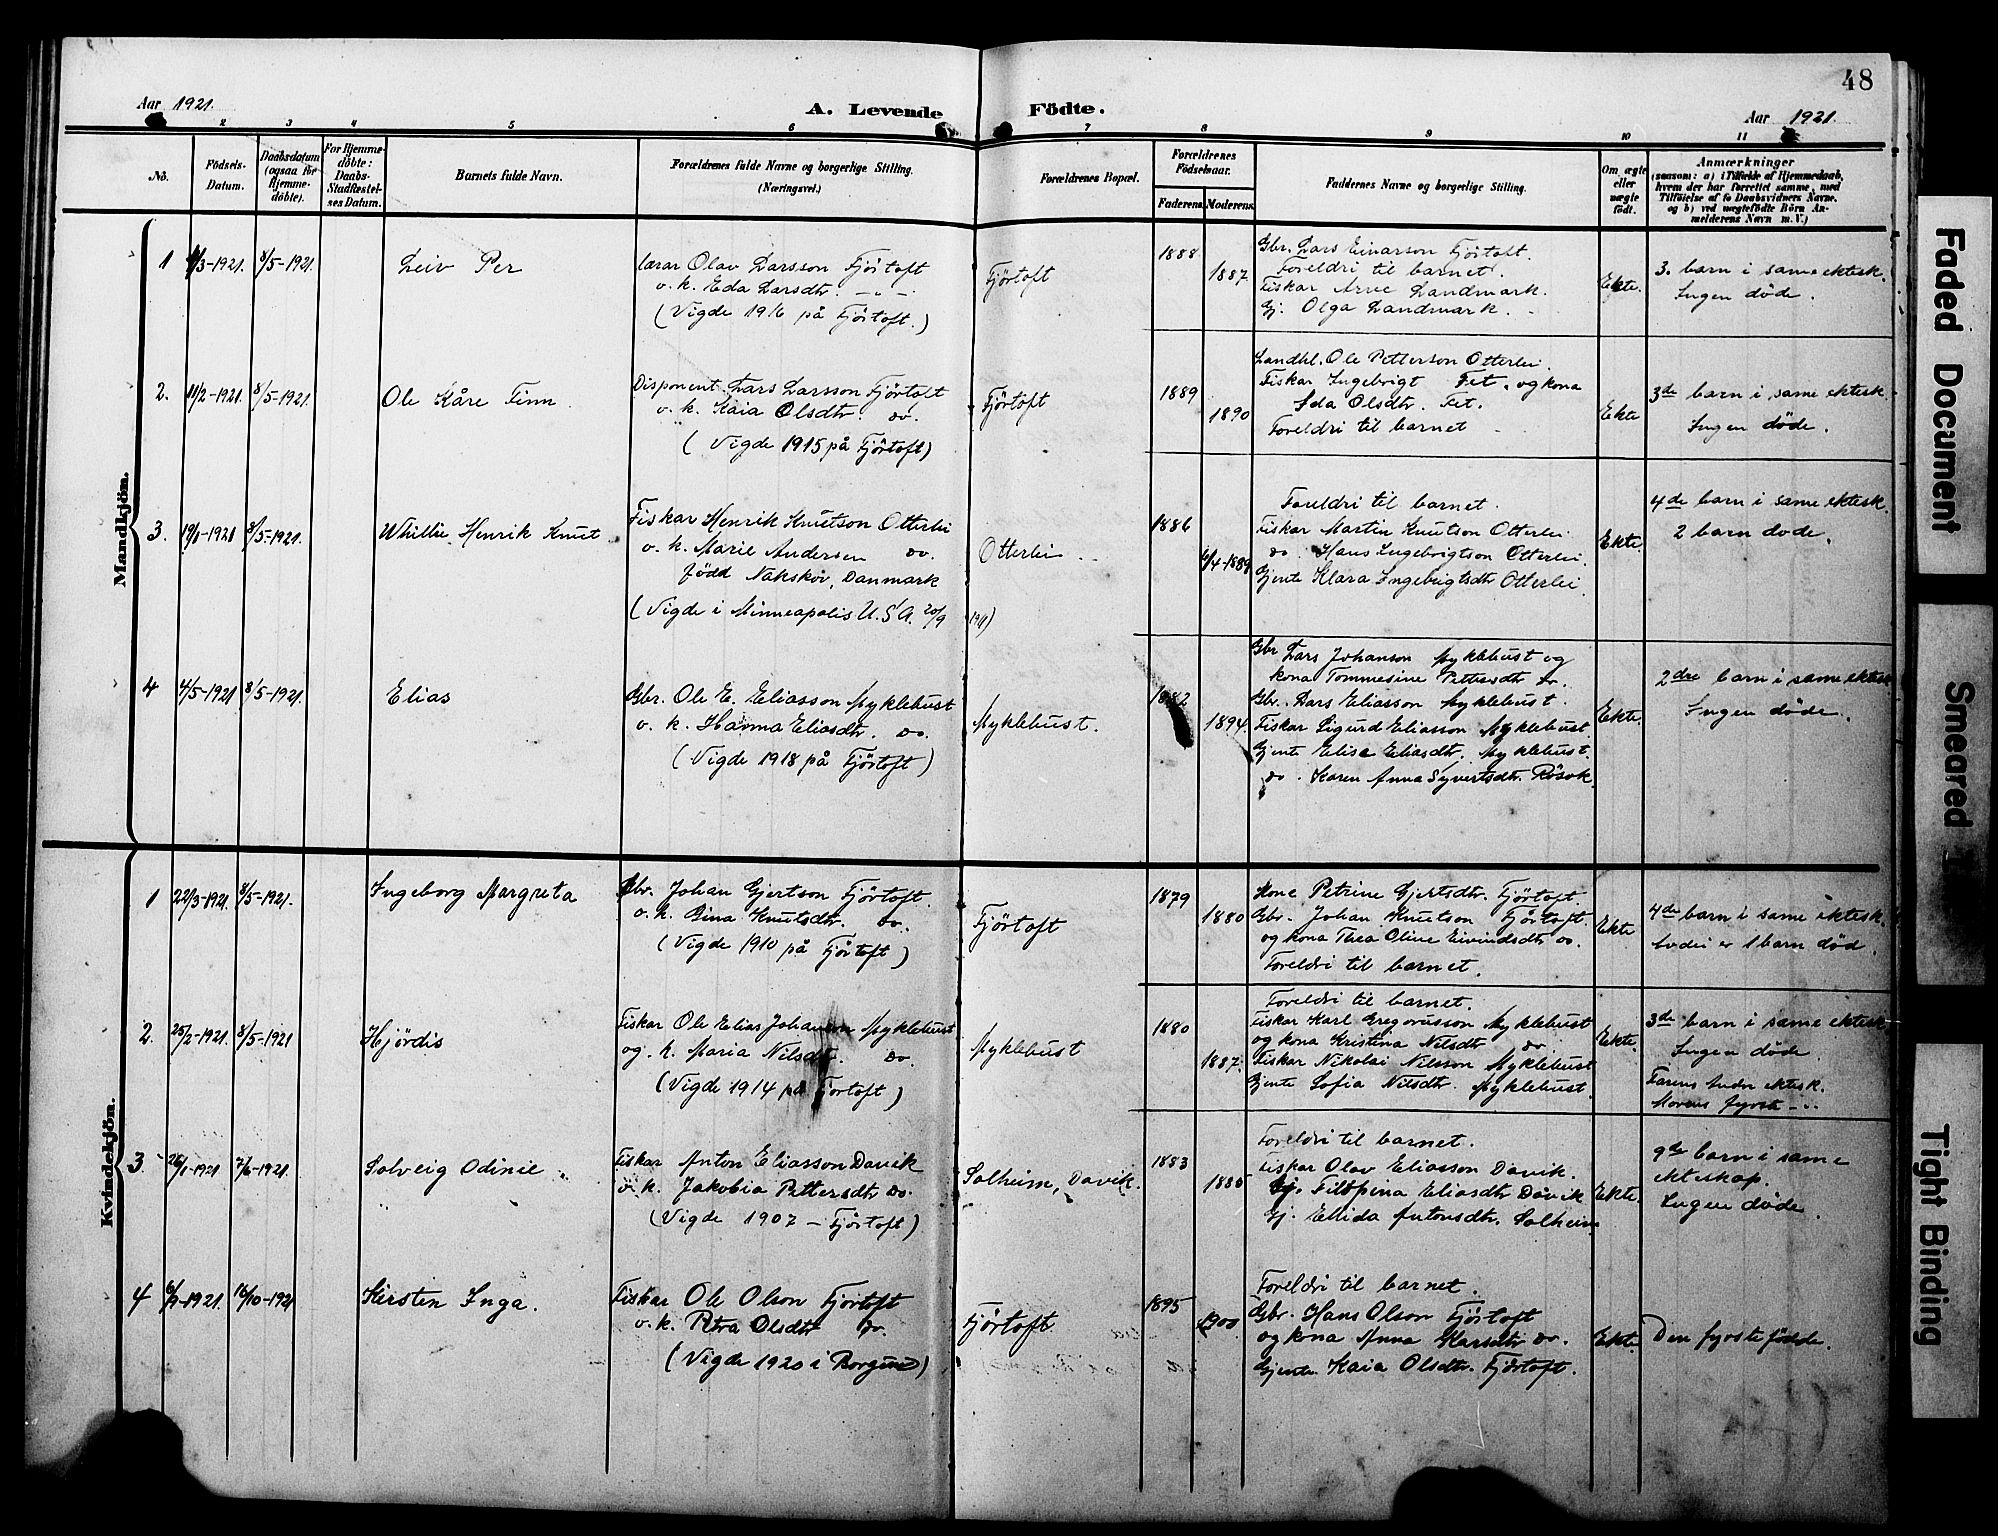 48
Aar 1921.
A. Levende Födte.
Aar 1921.
1 2 3 4 5 6 7 8 9 10 11
No.
Födsels-Datum.
Daabsdatum (ogsaa for Hjemme-döbte).
For Hjemme-döbte: Daabs-Stadfæstel-ses Datum.
Barnets fulde Navn.
Forældrenes fulde Navne og borgerlige Stilling. (Næringsvei.)
Forældrenes Bopæl.
Forældrenes Födselsaar.
Faderens. Moderens.
Faddernes Navne og borgerlige Stilling.
Om ægte eller uægte födt.
Anmærkninger
(saasom: a) i Tilfælde af Hjemmedaab,
hvem der har forrettet samme, med
Tilföielse af to Daabsvidners Navne.
og b) ved uægtefödte Börn An-
melderens Navn m. V.)
Mandkjön.
1 /3-1921. 8/5-1921. Leiv Per
lærar Olav Larsson Fjörtoft
o. k. Eda Larsdtr. - " -
(Vigde 1916 på Fjörtoft.)
Fjörtoft
1888
1887.
Gbr. Lars Einarson Fjörtoft.
Foreldri til barnet.
Fiskar Arne Landmark.
Gj. Olga Landmark.
Ekte.
3. barn i same ektesk.
Ingen döde.
2. 11/2-1921. 8/5-1921. Ole Kåre Finn.
Disponent. Lars Larsson Fjörtoft
o. k. Kaia Olsdtr. do.
(Vigde 1915 på Fjörtoft)
Fjörtoft
1889
1890
Landhl. Ole Petterson Otterlei.
Fiskar Ingebrigt Fet. og kona
Ida Olsdtr. Fet.
Foreldri til barnet
Ekte
3de barn i same ektesk.
Ingen döde.
3. 19/1-1921 8/5-1921. Whillie Henrik Knut
Fiskar Henrik Knutson Otterlei
o. k. Marie Andersen do.
född Nakskov, Danmark
(Vigde i Minneapolis U.S.A. 20/9 1911)
Otterlei
1886
/4-1889
Foreldri til barnet.
Fiskar Martin Knutson Otterlei
do. Hans Ingebrigtson Otterlei.
Gjente Klara Ingebrigtsdtr Otterlei.
Ekte.
4de barn i same ektesk.
2 barn döde.
4 4/5-1921 8/5-1921. Elias
Gbr. Ole E. Eliasson Myklebust
o. k. Hanna Eliasdtr. do.
(Vigde 1918 på Fjörtoft)
Myklebust.
1882
1894.
Gbr Lars Johanson Myklebust og
kona Tommesine Pettersdtr do.
Gbr. Lars Eliasson Myklebust.
Fiskar Sigurd Eliasson Myklebust.
Gjente Elise Eliasdtr. Myklebust.
do. Karen Anna Syvertsdtr. Rösok.
Ekte.
2dre barn i same ektesk
Ingen döde.
Kvindekjön.
1 22/3-1921. 8/5-1921. Ingeborg Margreta
Gbr. Johan Gjertson Fjörtoft.
o. k. Gina Knutsdtr. do.
(Vigde 1910 på Fjörtoft)
Fjörtoft
1879
1880
Kone Petrine Gjertsdtr. Fjörtoft.
Gbr. Johan Knutson Fjörtoft.
og kona Thea Oline Eivindsdtr do.
Foreldri til barnet.
Ekte
4de barn i same ektesk.
er 1 barn död.
2. 25/2-1921. 8/5-1921 Hjördis
Fiskar Ole Elias Johanson Myklebust
og. k. Maria Nilsdtr. do.
(Vigde 1914 på Fjörtoft)
Myklebust
1880
1887.
Foreldri til barnet.
Fiskar Karl Gregoriusson Myklebust
og kona Kristina Nilsdtr do
Fiskar Nikolai Nilsson Myklebust
Gjente Sofia Nilsdtr. Myklebust.
Ekte.
3de barn i same ektesk
Ingen döde.
Farens andre ektesk.
Morens fyrste - " -
3. 26/1-1921 7/6-1921. Solveig Odinie
Fiskar Anton Eliasson Davik
o. k. Jakobia Pettersdtr do.
(Vigde 1907 - Fjörtoft)
Solheim, Davik.
1883
1885
Foreldri til barnet.
Fiskar Olav Eliasson Davik.
Gj. Filopina Eliasdtr Davik
Gj. Ellida Antonsdtr. Solheim
Ekte.
9de barn i same
ekteskap.
Ingen döde.
4 /9-1921. 16/10-1921 Kirsten Inga.
Fiskar Ole Olson Fjörtoft
o. k. Petra Olsdtr do.
(Vigde 1920 i Borgund)
Fjörtoft
1895
1900
Foreldri til barnet.
Gbr. Hans Olson Fjörtoft
og kona Anna Karsdtr do.
Gjente Kaia Olsdtr. Fjörtoft.
Ekte.
Den fyrste födde.
Faded Document
Smeared
Tight Binding